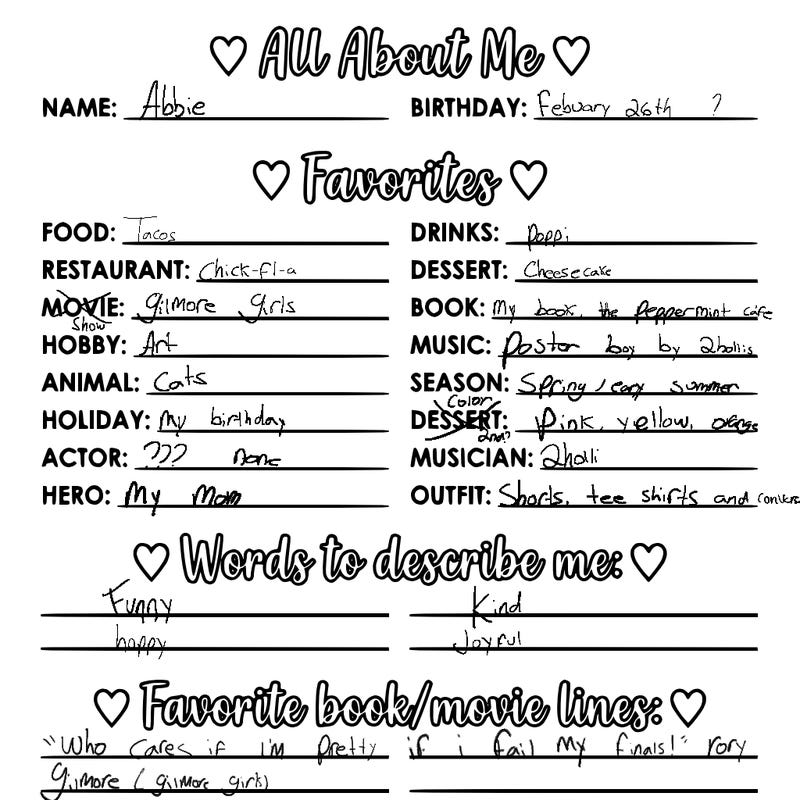 All About Me
NAME: Abbie BIRTHDAY: Febuary 26th ?
Favorites
FOOD: Tacos DRINKS: Poppi
RESTAURANT: Chick-fl-a DESSERT: Cheesecake
MOVIE: gilmore girls BOOK: My book, the peppermint cafe
Show
HOBBY: Art MUSIC: Poster boy by 2hollis
ANIMAL: Cats SEASON: Spring / early summer
Color
HOLIDAY: My birthday DESSERT: Pink, yellow, orange
2nd?
ACTOR: ??? none MUSICIAN: 2holli
HERO: My Mom OUTFIT: Shorts, tee shirts and
Words to describe me:
Funny Kind
happy Joyful
Favorite book/movie lines:
"Who cares if i'm pretty if i fail my finals!" rory
gilmore (gilmore girls)